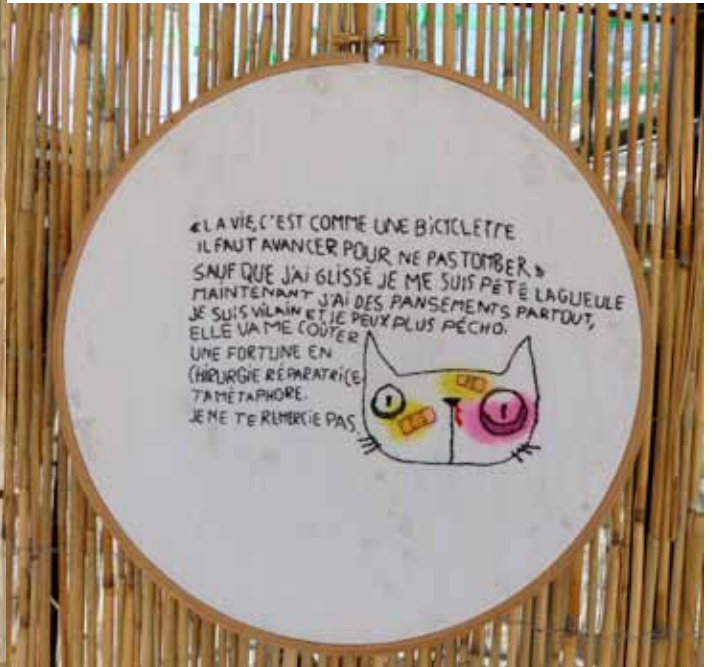 «LA VIE, C'EST COMME UNE BICYCLETTE
IL FAUT AVANCER POUR NE PAS TOMBER»
SAUF QUE J'AI GLISSÉ JE ME SUIS PÉTÉ LA GUEULE
MAINTENANT J'AI DES PANSEMENTS PARTOUT,
JE SUIS VILAIN ET JE PEUX PLUS PÉCHO.
ELLE VA ME COÛTER
UNE FORTUNE EN
CHIRURGIE RÉPARATRICE
TA MÉTAPHORE.
JE NE TE REMERCIE PAS.